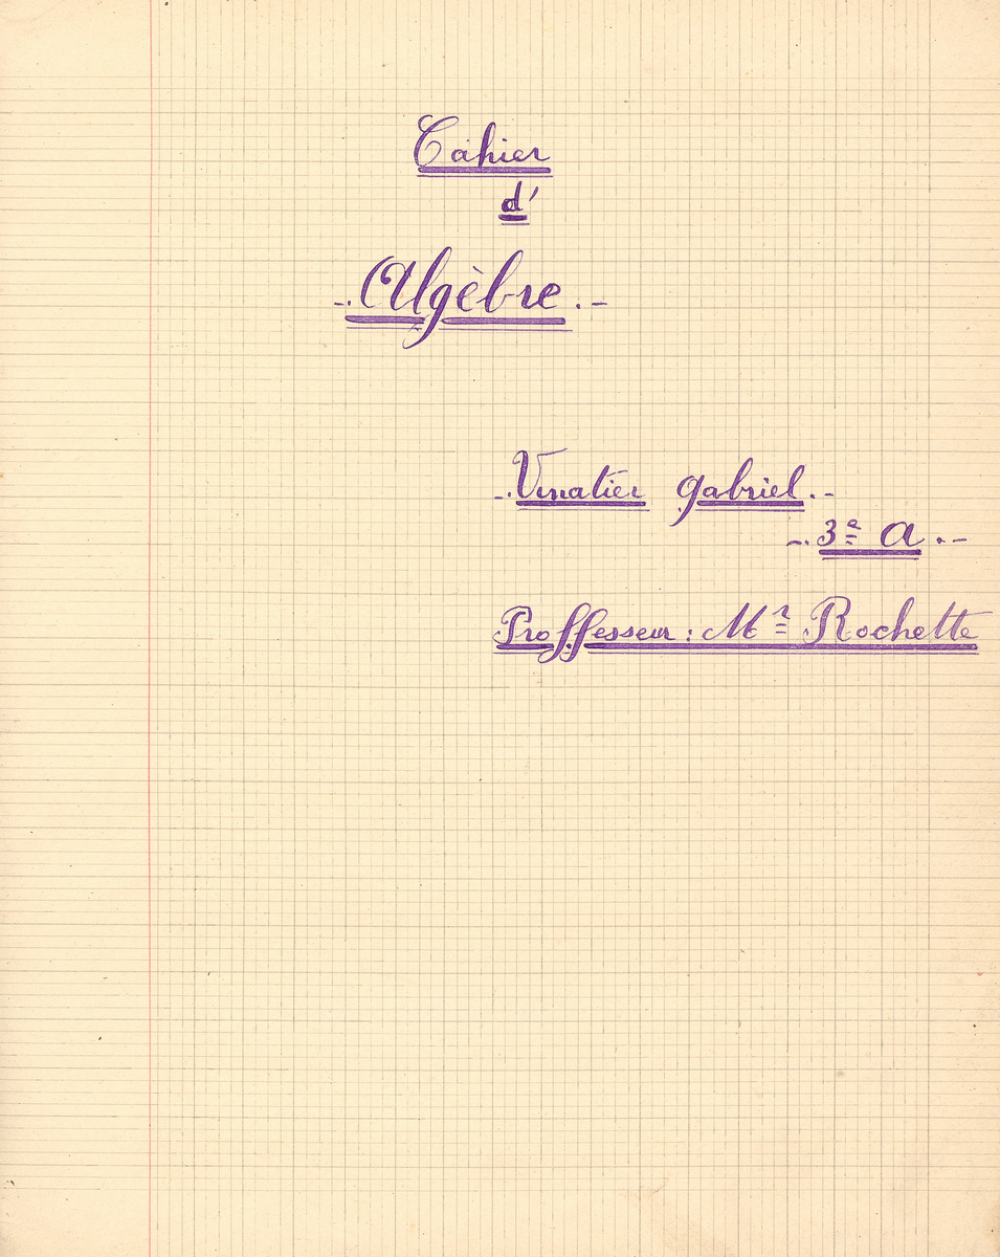 Cahier
d'
-. Algèbre .-
-. Vinatier Gabriel .-
-. 3e A .-
Proffesseur : Mr Rochette